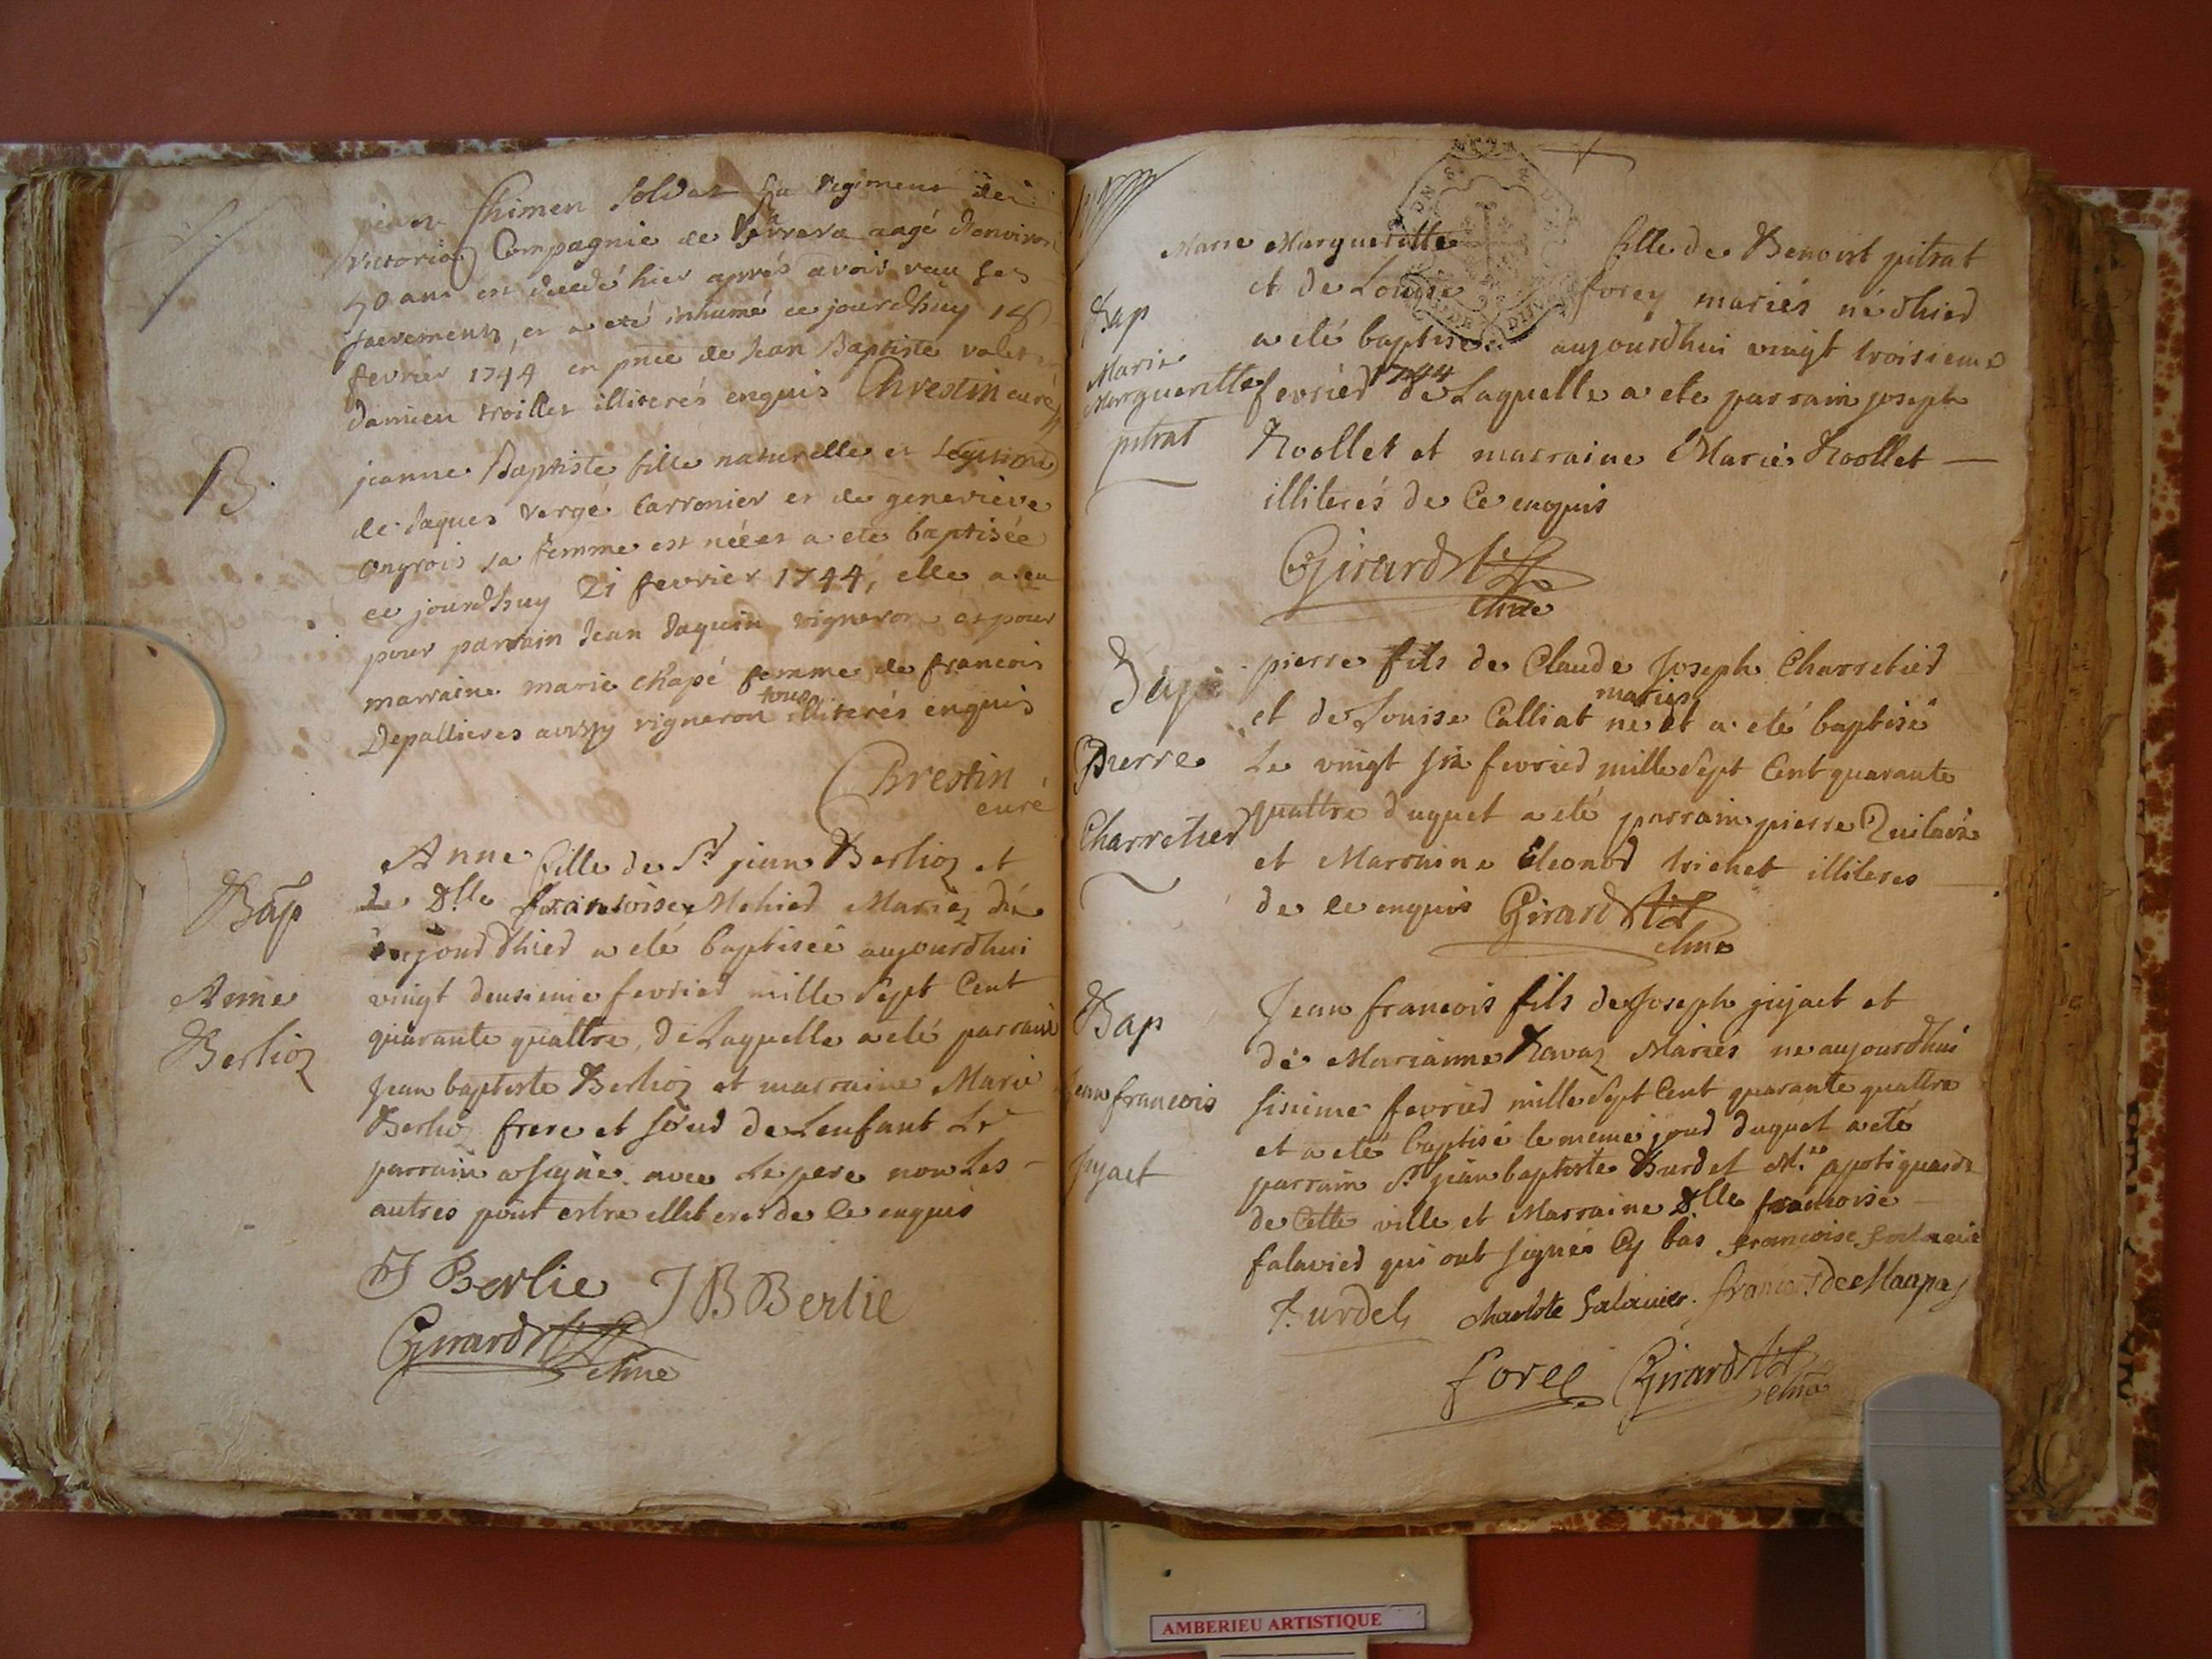 Chimen soldat du Regiment de
victoria Compagnie de Verrera aagé d'environ
50 ans est decedé hier aprrés avoir reçu ses
sacrements, et a eté inhumé ce jourdhuy 18
fevrier 1744 en pñce de Jean Baptiste valet et
damien troillet illiterés enquis Chrestin curé
B.
jeanne Baptiste fille naturelle et Legitime
de Jaques vergé Carronier et de genevieve
ongrois sa femme est née et a ete baptisée
ce jourdhuy 21 fevrier 1744, elle a eu
pour parrain Jean Jaquin vigneron et pour
marraine marie chapé femme de francois
Depallieres aussy vigneron tous illiterés enquis
Chrestin
curé
Bap
Anne
Berlioz
Anne fille de Sr jean Berlioz et
de Dlle francoise Mariez
jourdhier a eté baptiseé aujourdhui
vingt deusieme fevrier mille Sept Cent
quarante quattre, de Laquelle a eté parrain
Jean baptiste Berlioz et marraine Marie
Berlioz frere et soeur de Lenfant Le
parrain a signé avec Le pere non Les
autres pour estre illiteres de Ce enquis
J Berlie J B Berlie
Girard
Bap
Marie
Margueritte
pitrat
Marie Margueritte fille de Benoist pitrat
et de Louise forey mariés né dhier
a eté baptise aujourdhui vingt troisieme
fevrier 1744 de Laquelle a ete parrain joseph
Roollet et marraine Marie Roollet
illiterés de Ce enquis
Girard
Bap
Pierre
Charretier
pierre fils de Claude Joseph Charretier
et de Louise Calliat mariés ne et a eté baptisé
Le vingt six fevrier mille Sept Cent quarante
quattre duquel a eté parrain pierre
et Marraine Eleonor trichet illiteres
de ce enquis Girard
Bap
Jean francois
jujact
Jean francois fils de Joseph jujact et
de Marianne Ravaz Mariés ne aujourdhui
sisieme fevrier mille Sept Cent quarante quattre
et a eté baptisé le meme jour duquel a eté
parrain Sr jean baptiste Burdet Me apotiquaire
de Cette ville et Marraine Dlle francoise
falavier qui ont signés Cy bas francoise
Burdet charlote falavier
forel Girard
AMBERIEU ARTISTIQUE